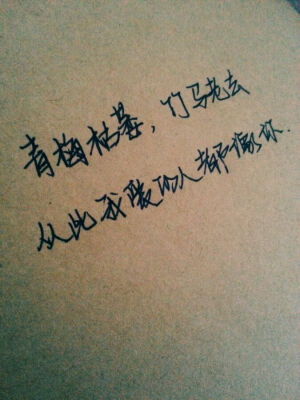 青梅枯萎，竹马老去
从此我暖的人都像你.